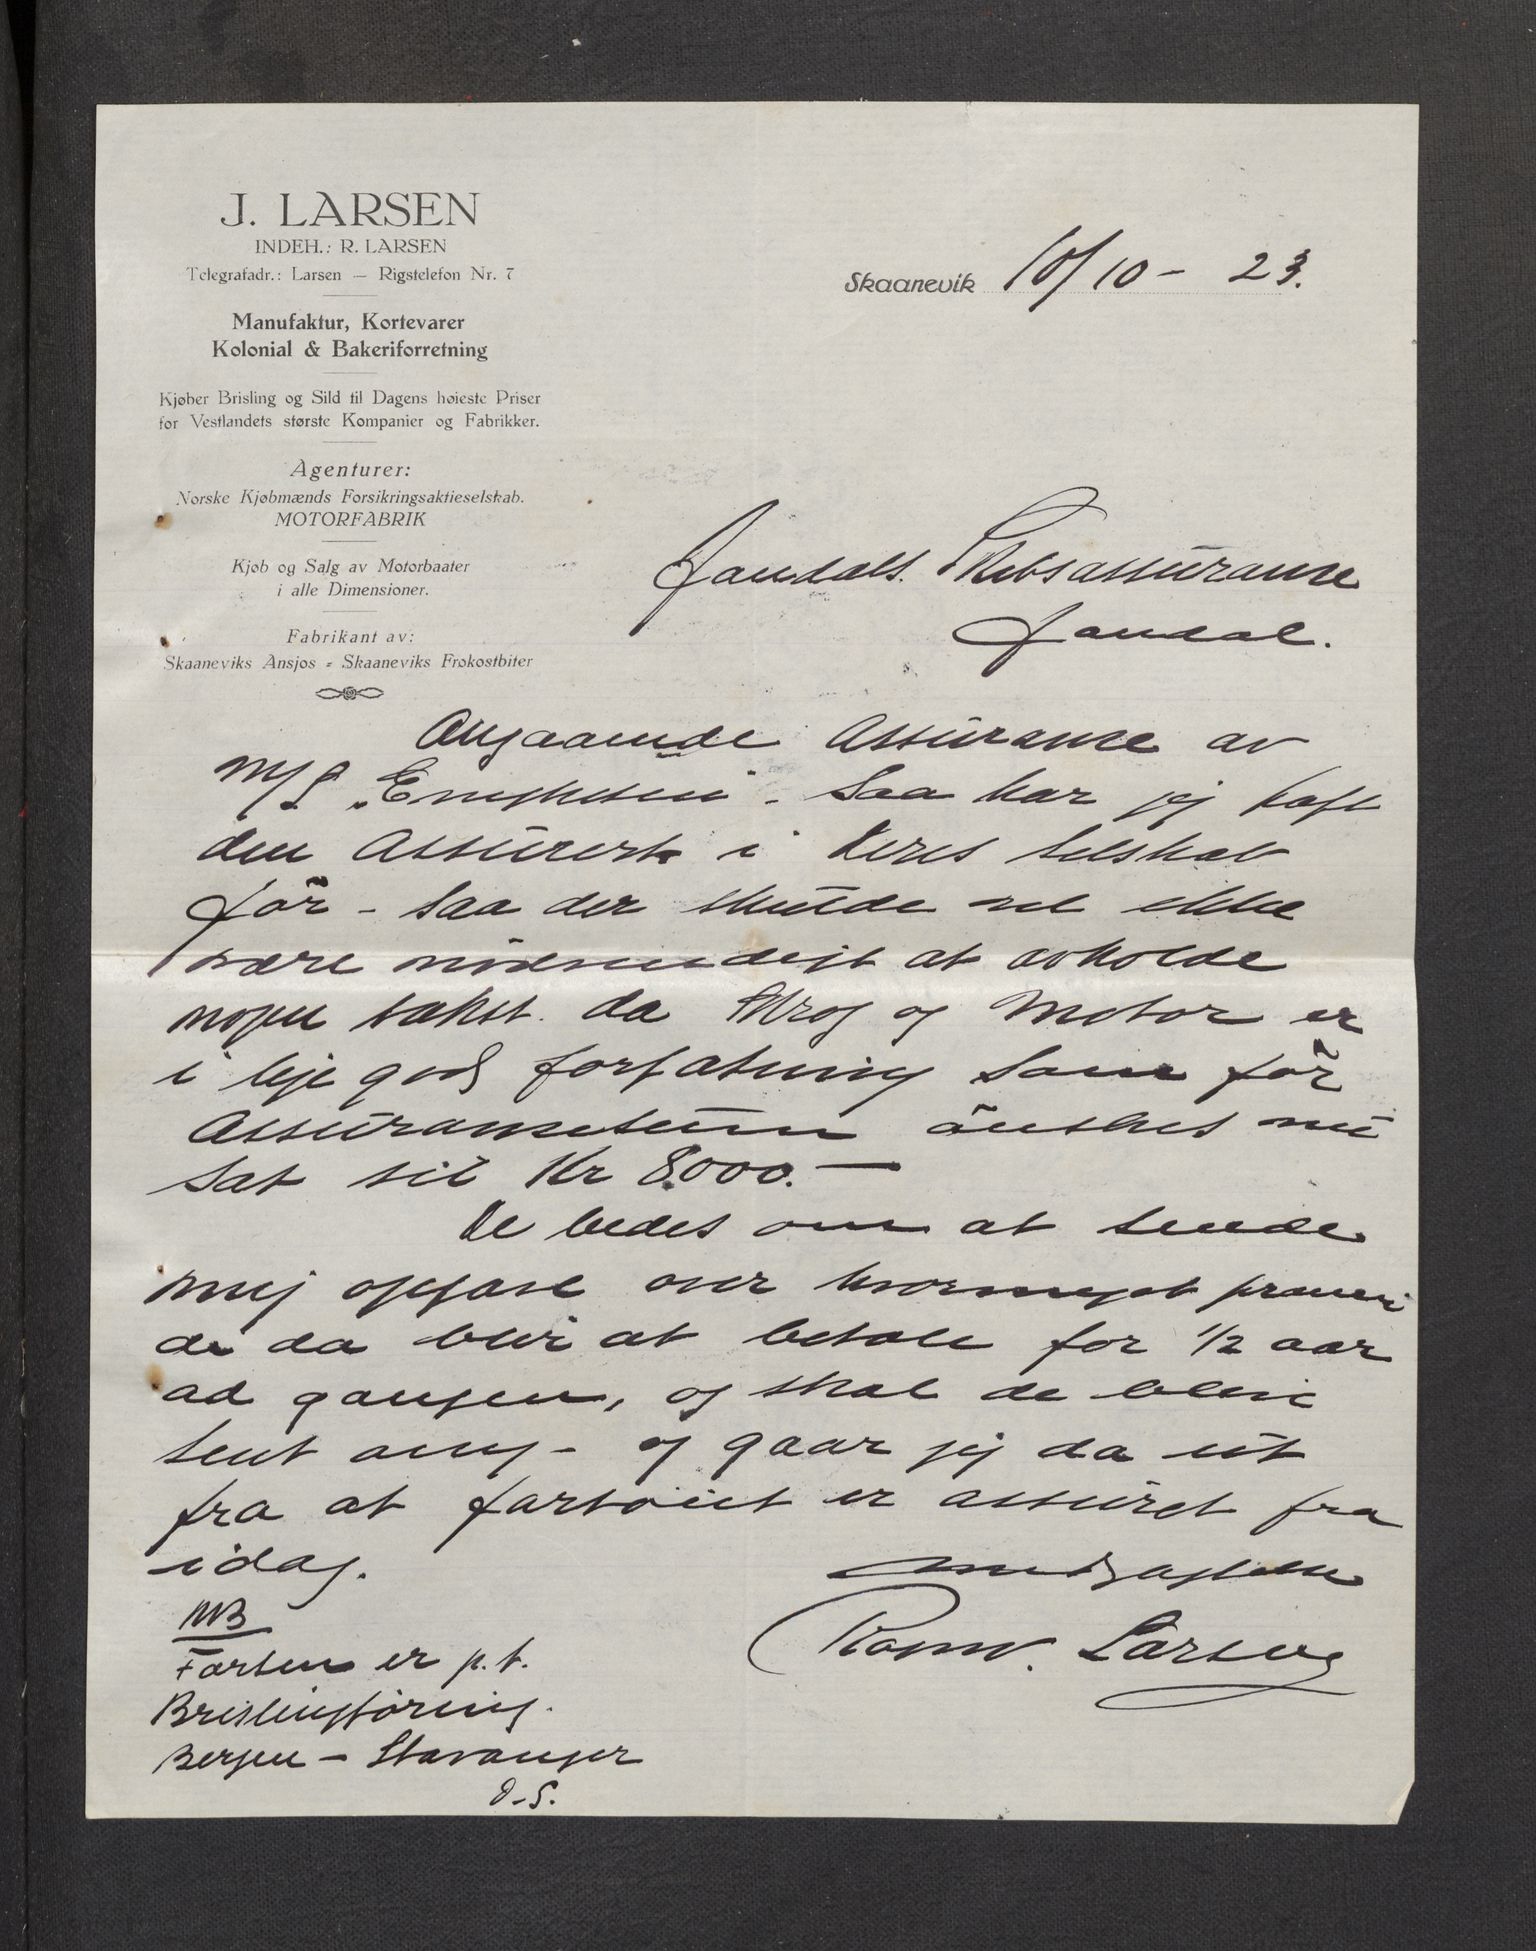 J. LARSEN
INDEH.: R. LARSEN
Telegrafadr.: Larsen — Rigstelefon Nr. 7
Manufaktur, Kortevarer
Kolonial & Bakeriforretning
Kjøber Brisling og Sild til Dagens høieste Priser
for Vestlandets største Kompanier og Fabrikker.
Agenturer:
Norske Kjøbmænds Forsikringsaktieselskab.
MOTORFABRIK
Kjøb og Salg av Motorbaater
i alle Dimensioner.
Fabrikant av:
Skaaneviks Ansjos - Skaaneviks Frokostbiter
Skaanevik 10/10 - 23.
Jondals. Skibsassuranse
Jondal.
Angaaende Assuranse av
M/S „Enigheten". Saa har jeg haft
den Assurert i Deres selskab
før - saa der skulde vel ikke
være nødvendigt at avholde
nogen takst. da Skrog og Motor er
i lige god forfatning som før
Assuransesum ønskes nu
sat til Kr 8.000.—
De bedes om at sende
mig opgave over hvormeget premi
de da blir at betale for 1/2 aar
ad gangen, og skal de bli
sent omg - og gaar jeg da ut
fra at fartøiet er assuret fra
idag.
Rasm. Larsen
NB
Farten er p.t.
Brislingføring.
Bergen – Stavanger
D.S.